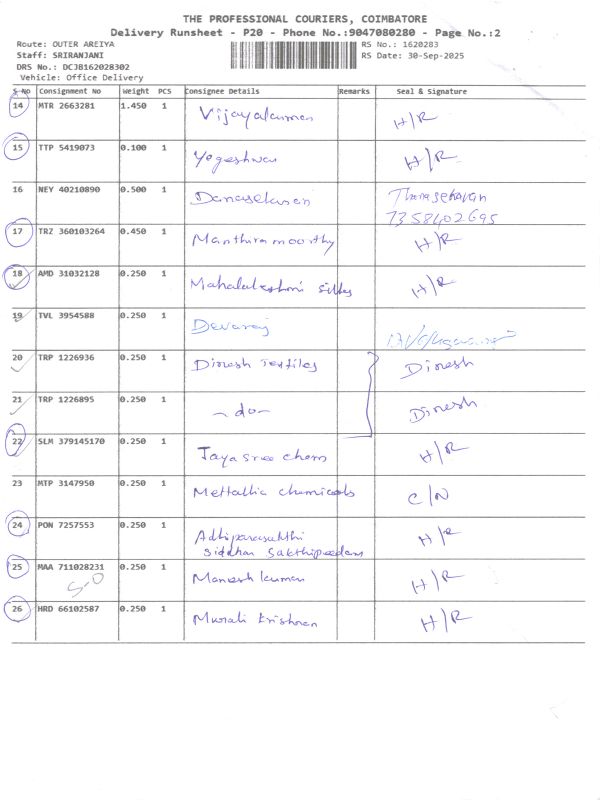 THE PROFESSIONAL COURIERS, COIMBATORE
Delivery Runsheet - P20 - Phone No.:9047080280 - Page No.:2
Route: OUTER AREIYA RS No.: 1620283
Staff: SRIRANJANI RS Date: 30-Sep-2025
DRS No.: DCJB162028302
Vehicle: Office Delivery
S No Consignment No Weight PCS Consignee Details Remarks Seal & Signature
14 MTR 2663281 1.450 1 Vijayakumar H/R
15 TTP 5419073 0.100 1 Yogeshwar H/R
16 NEY 40210890 0.500 1 Danasekaran Thanasekaran
7358402695
17 TRZ 360103264 0.450 1 Manthiramoorthy H/R
18 AMD 31032128 0.250 1 Mahalakshmi silks H/R
19 TVL 3954588 0.250 1 Devaraj
20 TRP 1226936 0.250 1 Dinesh Textiles Dinesh
21 TRP 1226895 0.250 1 -do- Dinesh
22 SLM 379145170 0.250 1 Jayasree chem H/R
23 MTP 3147950 0.250 1 Mettallic chemicals C/N
24 PON 7257553 0.250 1 Adhiparasakthi H/R
siddhar Sakthipeedam
25 MAA 711028231 0.250 1 Manesh kumar H/R
26 HRD 66102587 0.250 1 Murali krishnan H/R